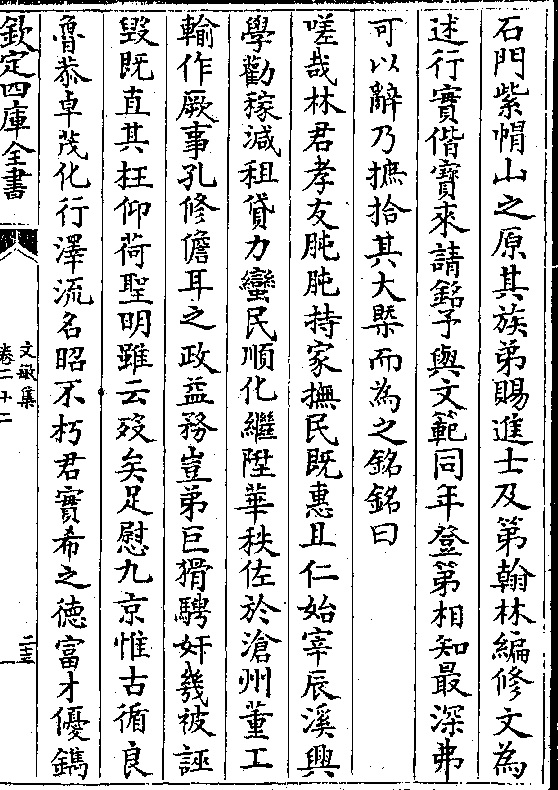 石門紫㡌山之原其族弟賜進士及第翰林編修文為
述行實偕寳來請銘予與文範同年登第相知最深弗
可以辭乃摭拾其大槩而為之銘銘曰
嗟哉林君孝友肫肫持家撫民既惠且仁始宰辰溪興
學勸稼減租貸力蠻民順化繼陞華秩佐於滄州董工
輸作厥事孔修儋耳之政益務豈弟巨猾騁奸㡬被誣
毀既直其枉仰荷聖明雖云歿矣足慰九京惟古循良
魯恭卓茂化行澤流名昭不朽君實希之徳富才優鐫
欽定四庫全書
文敏集
卷二十二
二十三